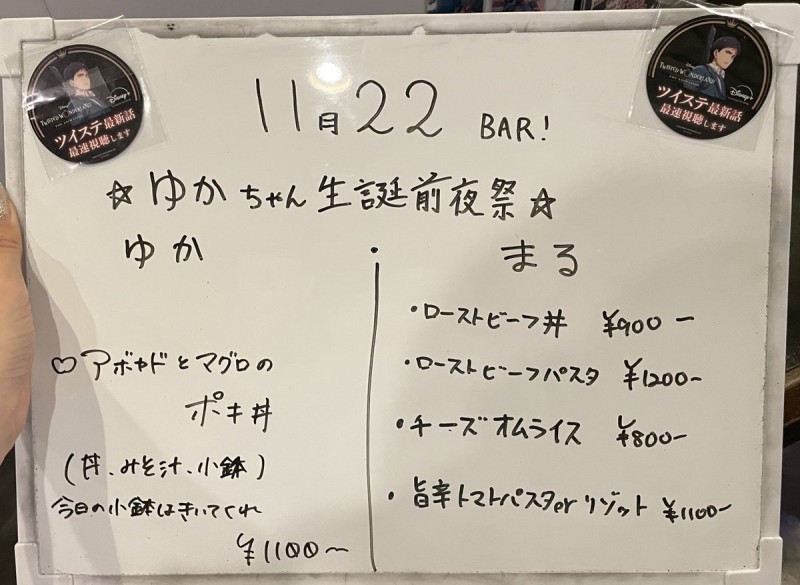 Disney
TWISTED WONDERLAND
Disney+
ツイステ最新話
最速視聴します
Disney
TWISTED WONDERLAND
Disney+
ツイステ最新話
最速視聴します
11月22 BAR!
☆ゆかちゃん生誕前夜祭☆
ゆか
♡アボカドとマグロの
ポキ丼
(丼、みそ汁、小鉢)
今日の小鉢はきいてくれ
¥1100〜
まる
・ローストビーフ丼 ¥900ー
・ローストビーフパスタ ¥1200ー
・チーズオムライス ¥800ー
・旨辛トマトパスタorリゾット ¥1100ー